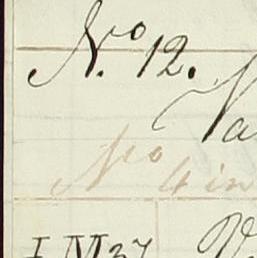 No. 12.
Va
No 4 in
I M 37 V.